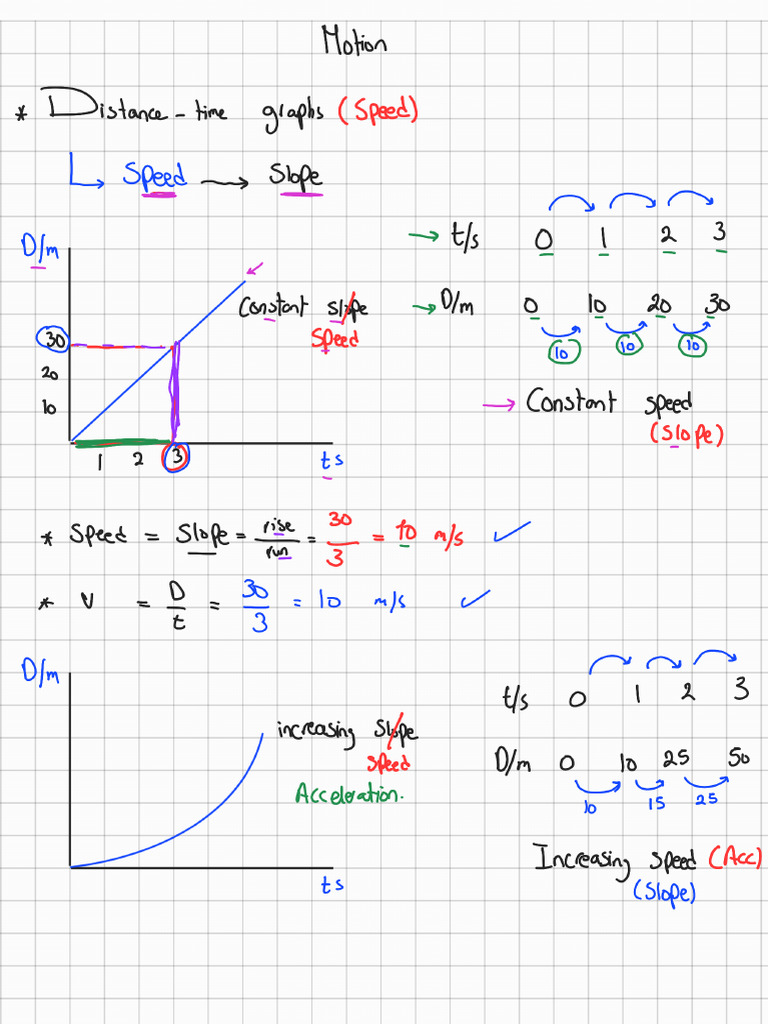 Motion
* Distance-time graphs (Speed)
Speed → Slope
t/s 0 1 2 3
D/m 0 10 20 30
10 10 10
→ Constant speed
(Slope)
D/m
Constant slope
Speed
30
20
10
1 2 3
t s
* Speed = Slope = rise/run = 30/3 = 10 m/s ✓
* V = D/t = 30/3 = 10 m/s ✓
D/m
increasing Slope
Speed
Acceleration.
t s
t/s 0 1 2 3
D/m 0 10 25 50
10 15 25
Increasing speed (Acc)
(Slope)